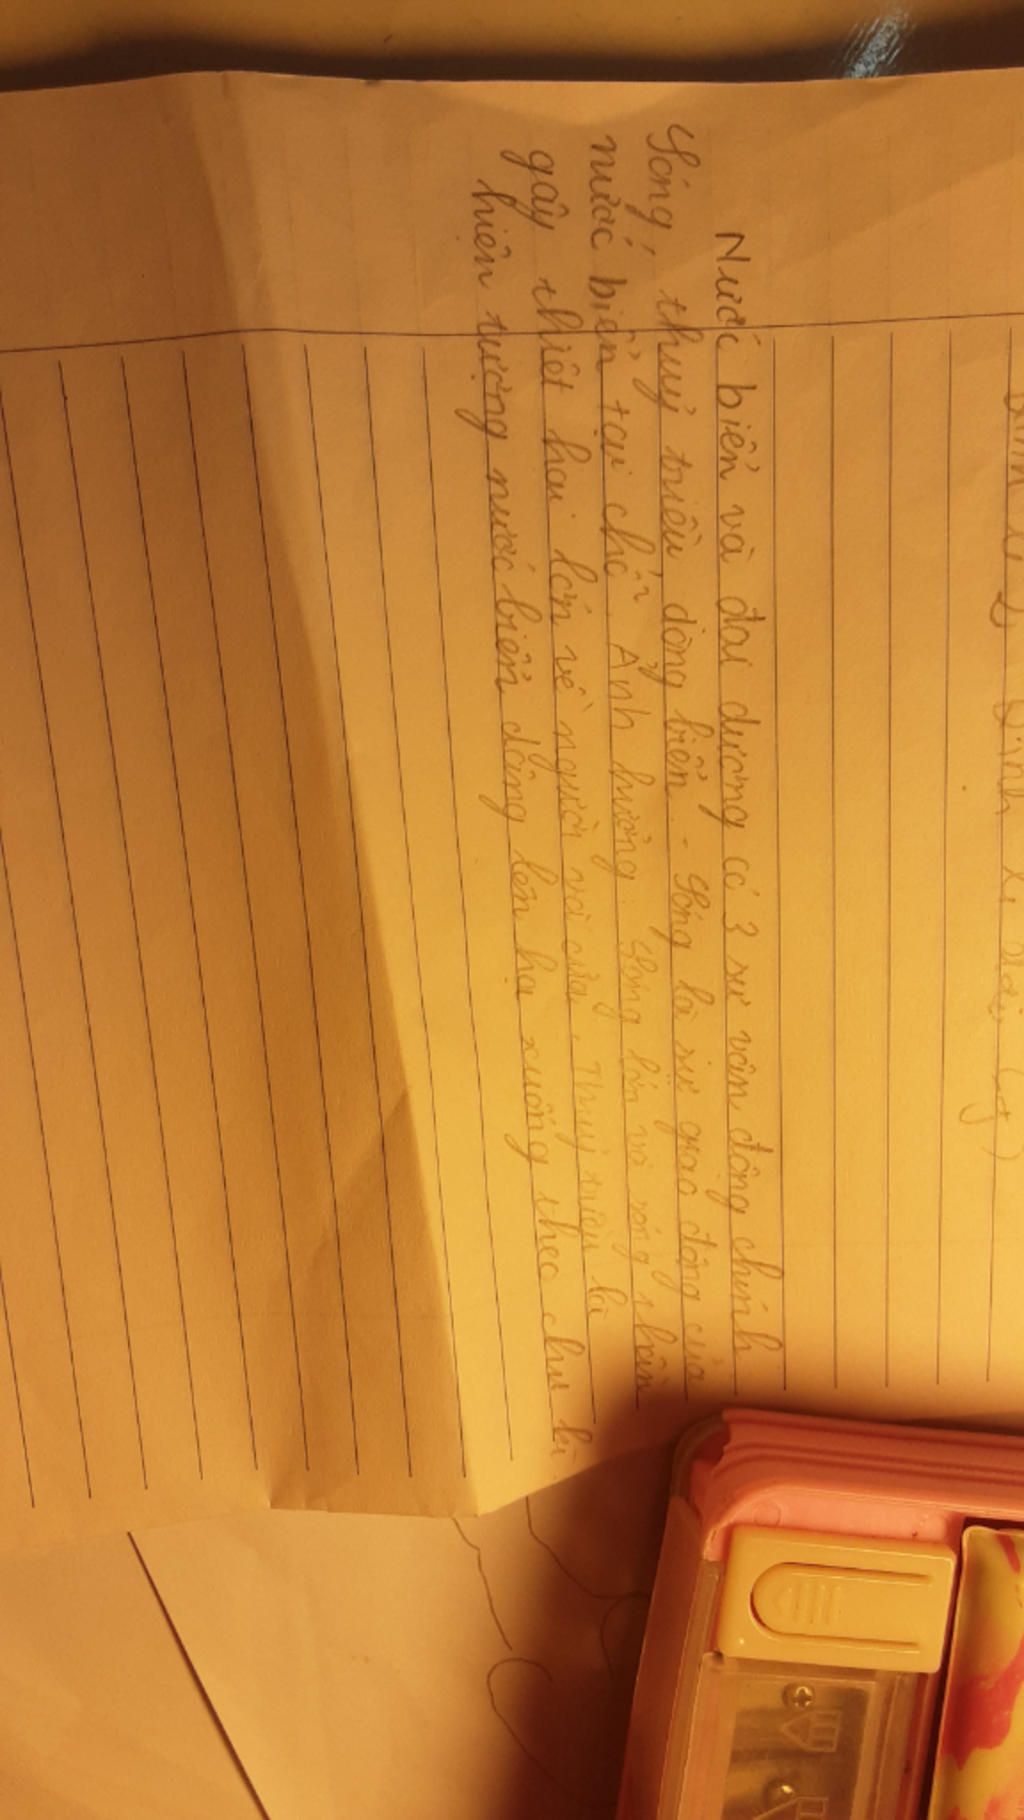 Nước biển và đại dương có 3 sự vận động chính
Sóng, thuỷ triều, dòng biển. - Sóng là sự giao động của
nước biển tại chỗ. Ảnh hưởng: Sóng lớn và sóng thần
gây thiệt hại lớn về người và của. Thuỷ triều là
hiện tượng nước biển dâng lên hạ xuống theo chu kì.